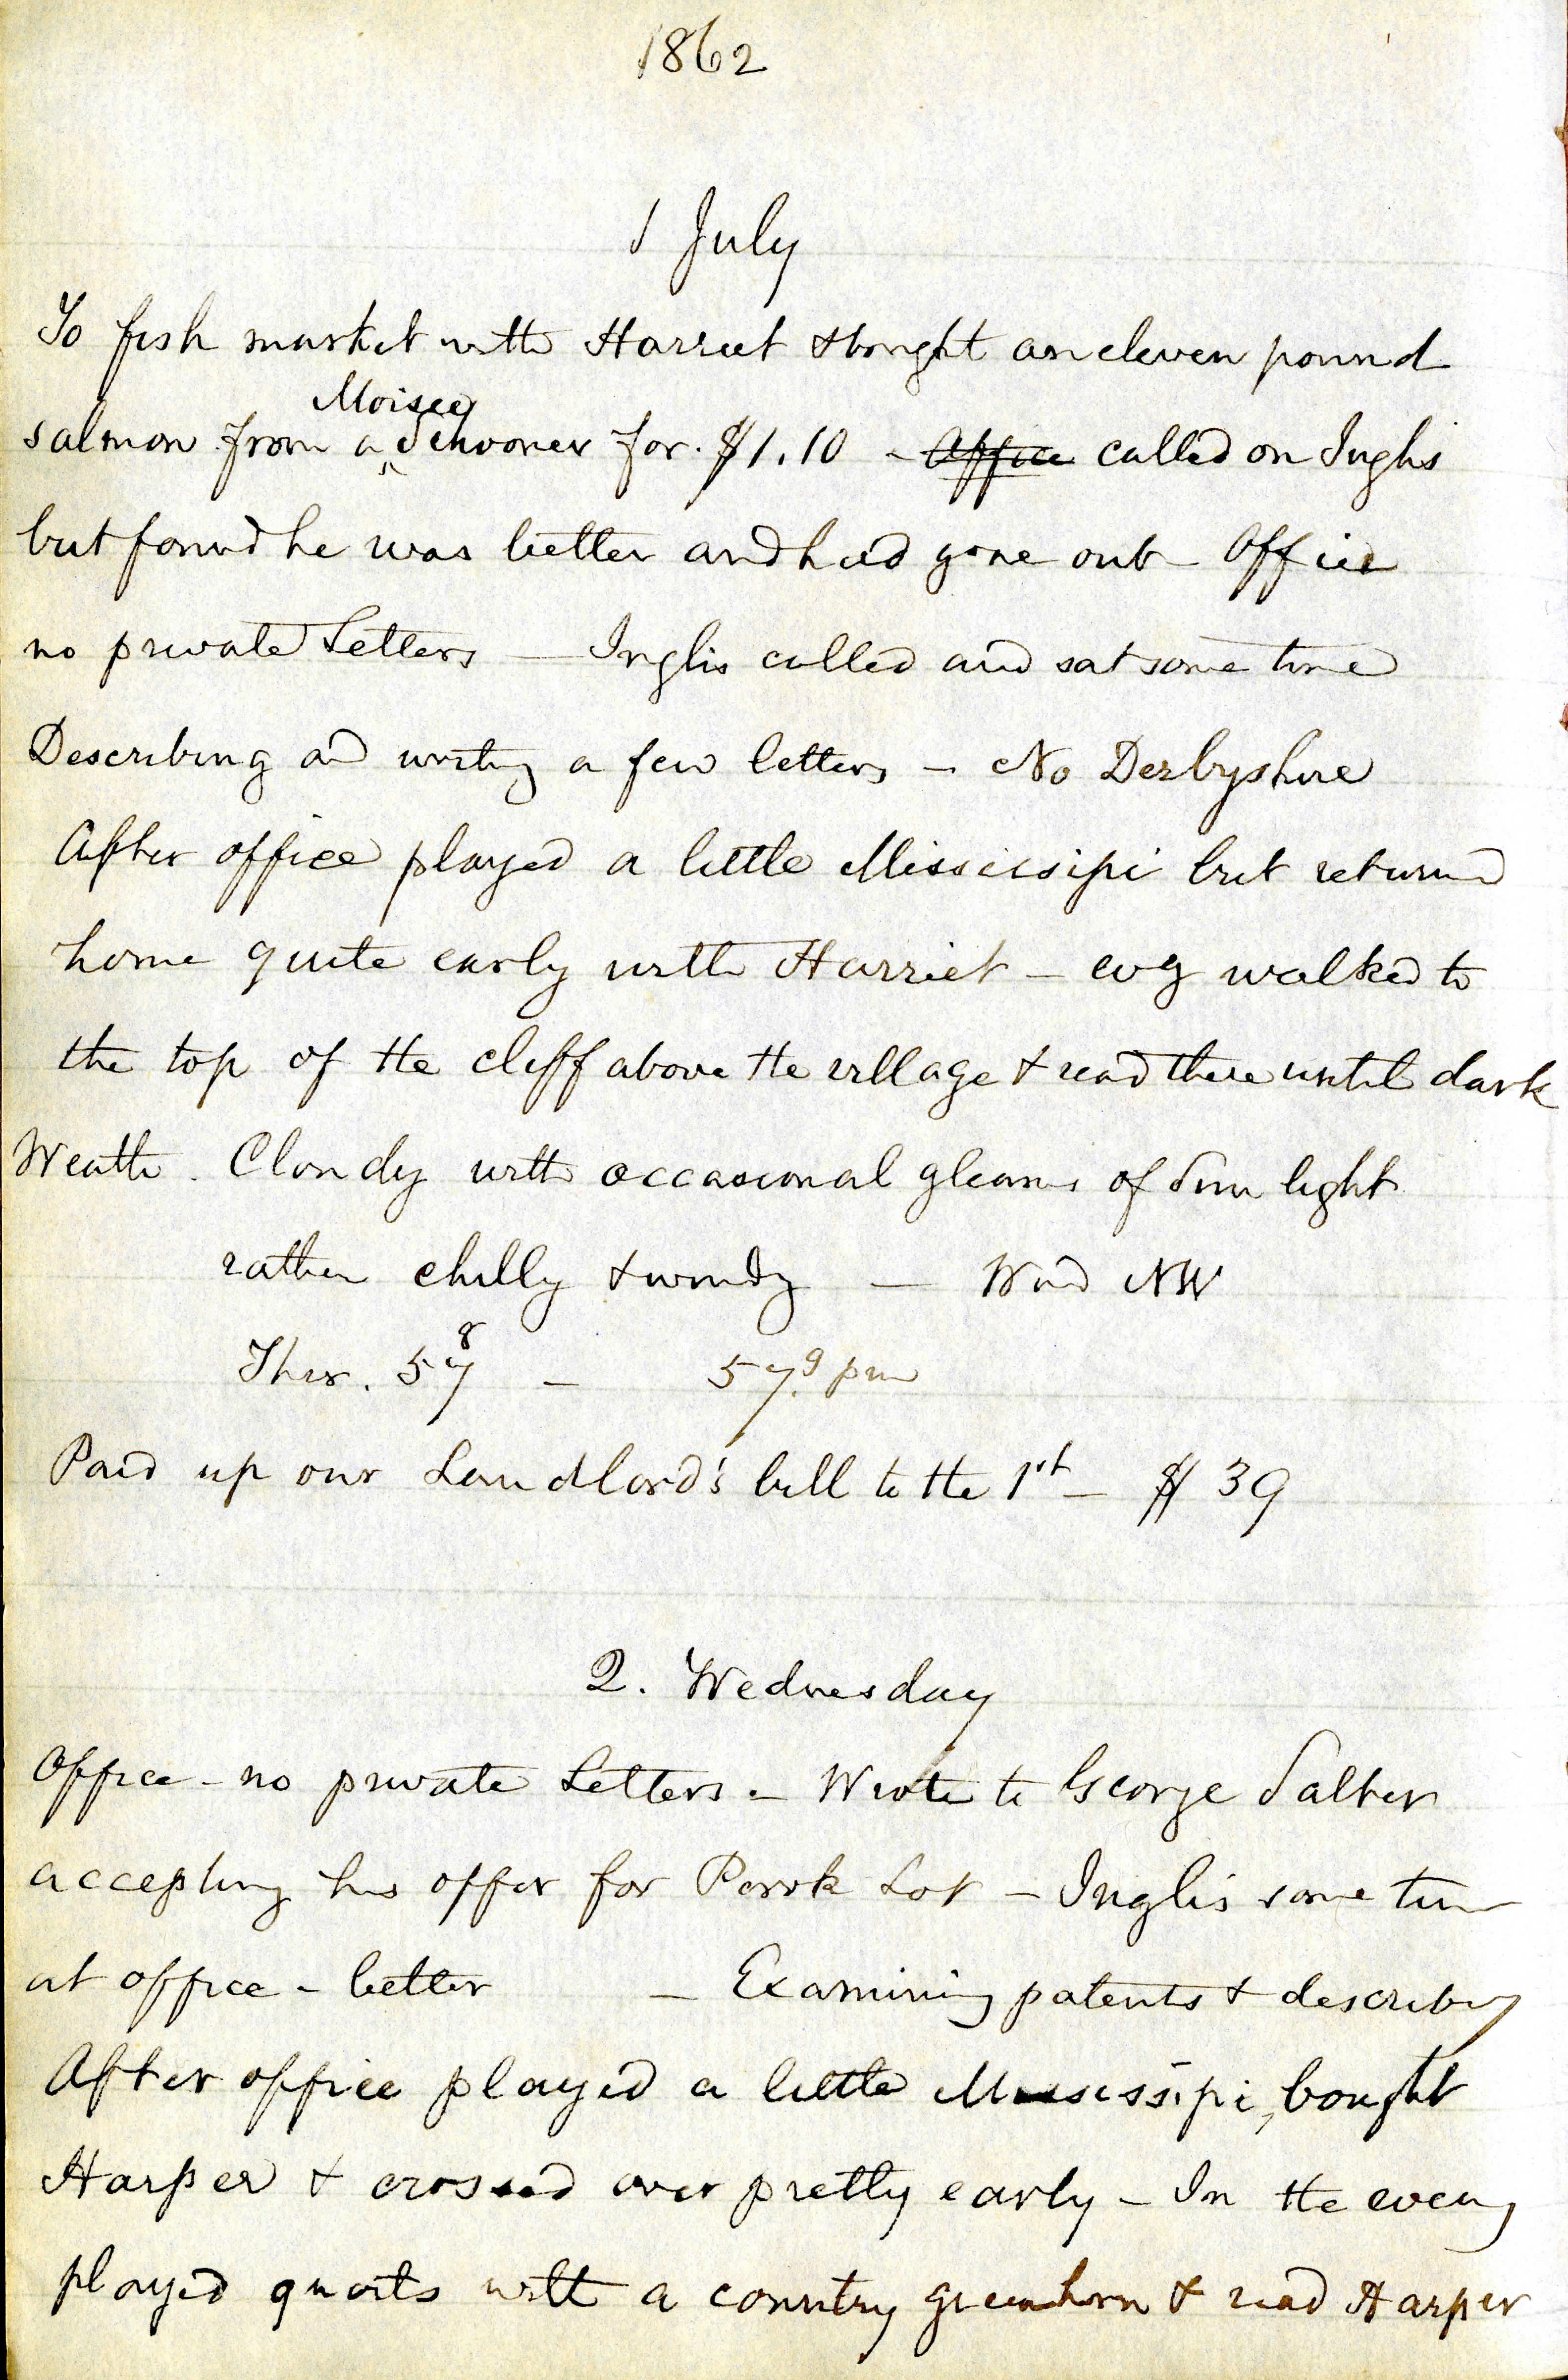 1862
1 July
To fish market with Harriet & bought an eleven pound
Moisee
salmon from a Schooner for $1.10 - Office called on Inglis
but found he was better and had gone out - Office
no private Letters — Inglis called and sat some time
Describing and writing a few letters - No Derbyshire
After office played a little Mississipi but returned
home quite early with Harriet - evg walked to
the top of the cliff above the village & read there until dark
Weathr. Cloudy with occasional gleams of Sun light
rather chilly & windy — Wind NW
Ther. 57 8 - 57 9 pm
Paid up our Landlord's bill to the 1st - $39
2. Wednesday
Office - no private Letters. - Wrote to George Salter
accepting his offer for Park Lot - Inglis some time
at office - better - Examining patents & describing
After office played a little Mississipi, bought
Harper & crossed over pretty early - In the eveng
played quoits with a country greenhorn & read Harper